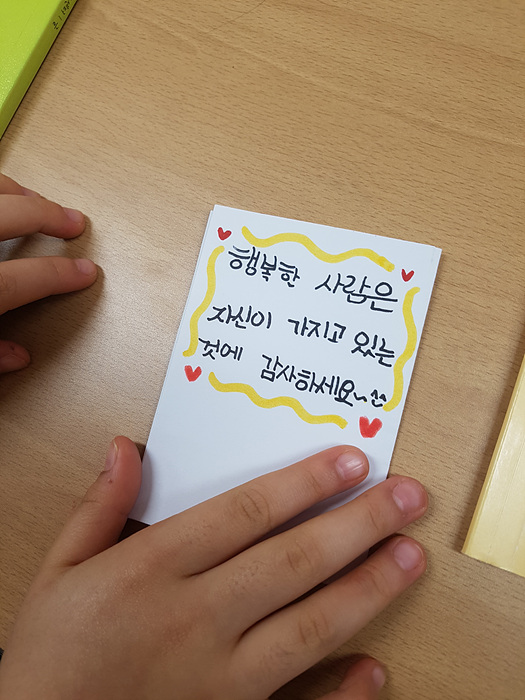 행복한 사람은
자신이 가지고 있는
것에 감사하세요~^^